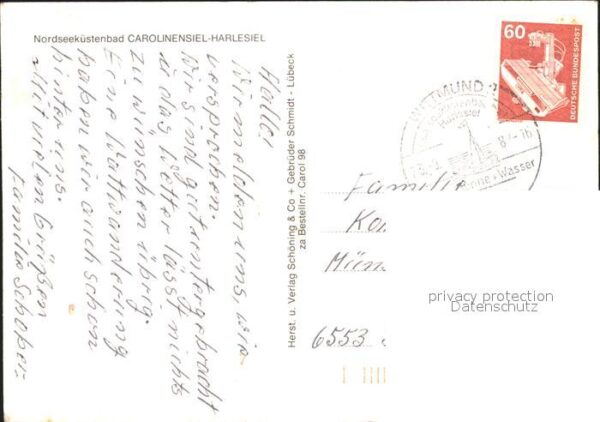 Nordseeküstenbad CAROLINENSIEL-HARLESIEL
Hallo,
Wir melden uns, wie
versprochen.
Wir sind gut untergebracht
u. das Wetter lässt nichts
zu wünschen übrig.
Eine Wattwanderung
haben wir auch schon
hinter uns.
Mit vielen Grüßen
Familie
Herst. u. Verlag Schöning & Co + Gebrüder Schmidt - Lübeck
za Bestellnr. Carol 98
60
DEUTSCHE BUNDESPOST
WITTMUND
Harlesiel
Sonne + Wasser
Familie
6553
privacy protection
Datenschutz